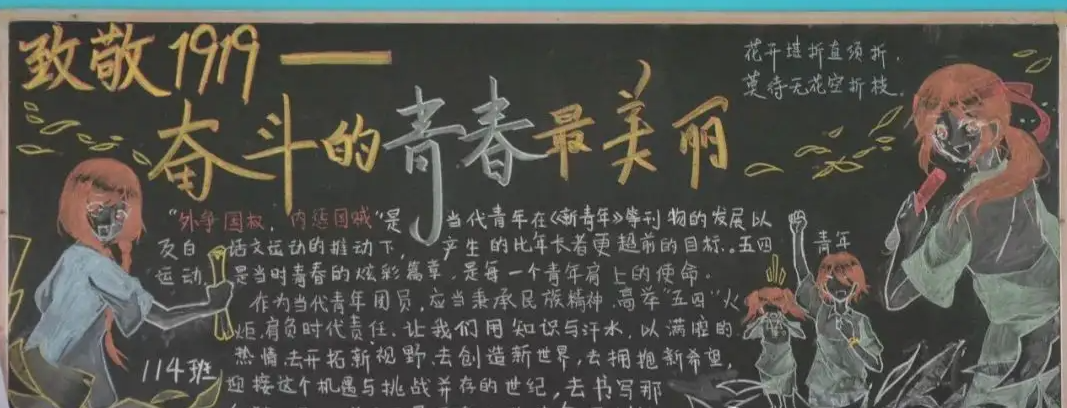 致敬1919——
奋斗的青春最美丽
花开堪折直须折，
莫待无花空折枝。
"外争国权，内惩国贼"是当代青年在《新青年》等刊物的发展以
及白话文运动的推动下，产生的比年长者更超前的目标。五四
运动，是当时青春的炫彩篇章，是每一个青年肩上的使命。
作为当代青年团员，应当秉承民族精神，高举"五四"火
炬，肩负时代责任，让我们用知识与汗水，以满腔的
热情，去开拓新视野，去创造新世界，去拥抱新希望，
迎接这个机遇与挑战并存的世纪，去书写那
青年
114班